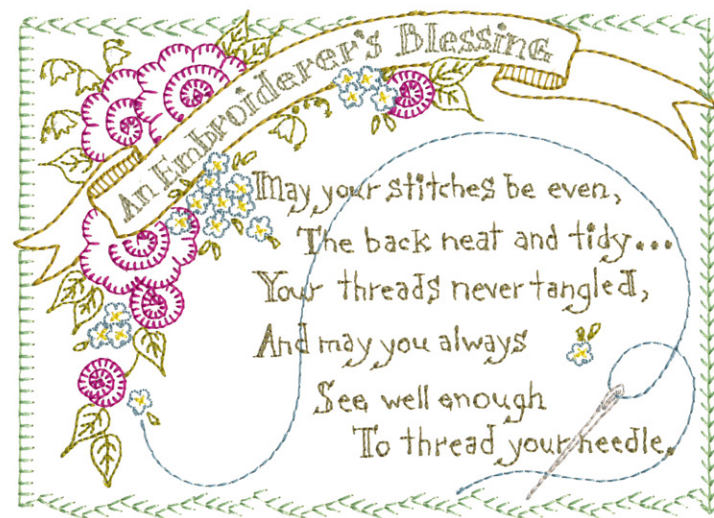 An Embroiderer's Blessing
May your stitches be even,
The back neat and tidy...
Your threads never tangled,
And may you always
See well enough
To thread your needle.